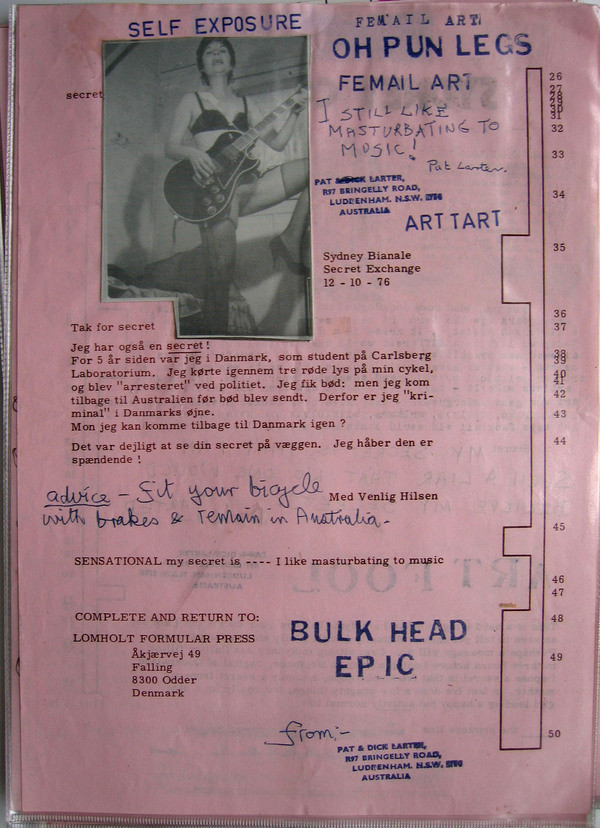 SELF EXPOSURE
FEMAIL ART
OH PUN LEGS
FEMAIL ART
secret
I STILL LIKE
MASTURBATING TO
MUSIC!
Pat Larter.
PAT & DICK LARTER,
R97 BRINGELLY ROAD,
LUDDENHAM. N.S.W.
AUSTRALIA
ART TART
Sydney Bianale
Secret Exchange
12 - 10 - 76
Tak for secret
Jeg har også en secret !
For 5 år siden var jeg i Danmark, som student på Carlsberg
Laboratorium. Jeg kørte igennem tre røde lys på min cykel,
og blev "arresteret" ved politiet. Jeg fik bød: men jeg kom
tilbage til Australien før bød blev sendt. Derfor er jeg "kri-
minal" i Danmarks øjne.
Mon jeg kan komme tilbage til Danmark igen ?
Det var dejligt at se din secret på væggen. Jeg håber den er
spændende !
advice - Fit your bicycle
Med Venlig Hilsen
with brakes & remain in Australia.
SENSATIONAL my secret is ---- I like masturbating to music
COMPLETE AND RETURN TO:
LOMHOLT FORMULAR PRESS
Åkjærvej 49
Falling
8300 Odder
Denmark
BULK HEAD
EPIC
from:-
PAT & DICK LARTER,
R97 BRINGELLY ROAD,
LUDDENHAM. N.S.W.
AUSTRALIA
26
27
28
29
30
31
32
33
34
35
36
37
38
39
40
41
42
43
44
45
46
47
48
49
50